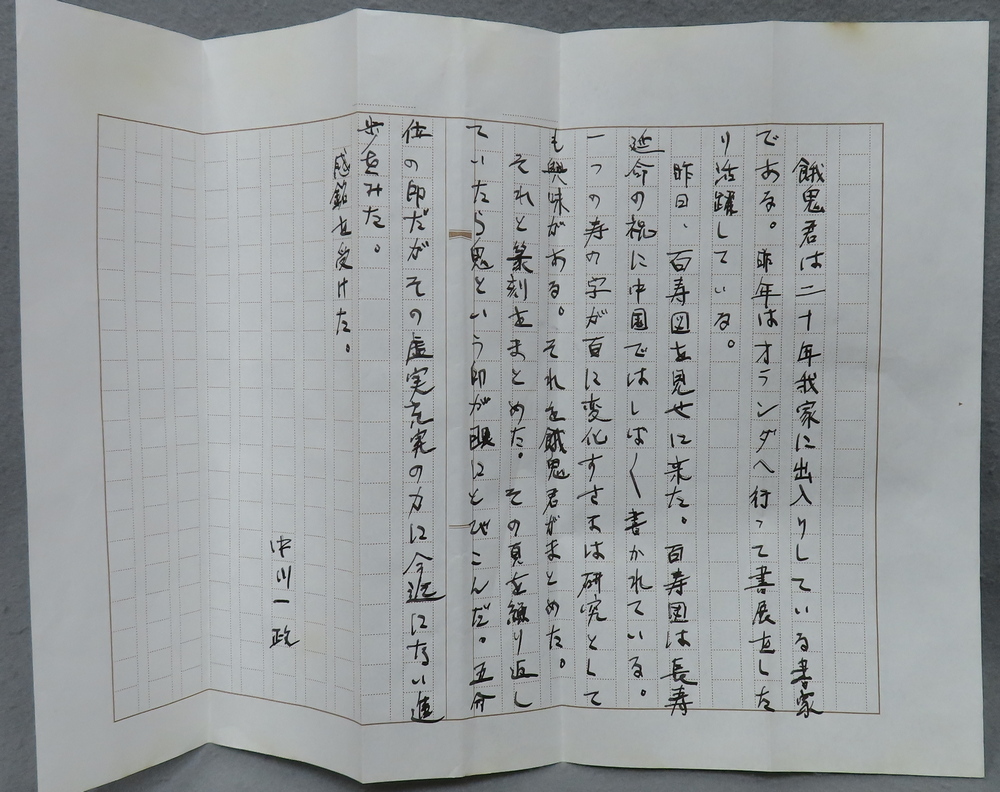 餓鬼君は二十年我家に出入りしている書家
である。昨年はオランダへ行って書展をした
り活躍している。
昨日、百寿図を見せに来た。百寿図は長寿
延命の祝に中国ではしばく書かれている。
一つの寿の字が百に変化するさまは研究として
も興味がある。それを餓鬼君がまとめた。
それと篆刻をまとめた。その頁を繰り返し
ていたら鬼という印が眼にとびこんだ。五分
位の印だがその虚実充実の力に今迄にない進
歩をみた。
感銘を受けた。
中川一政